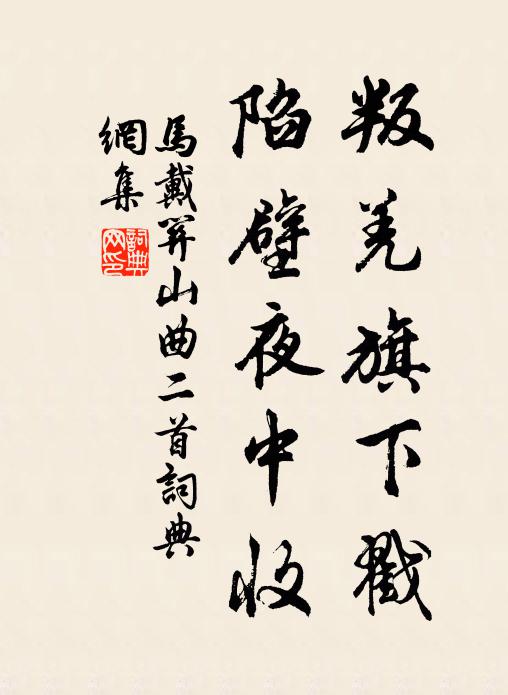 叛羌旗下戮
陷壁夜中收
馬戴關山曲二首詞典
網集
詞典網印